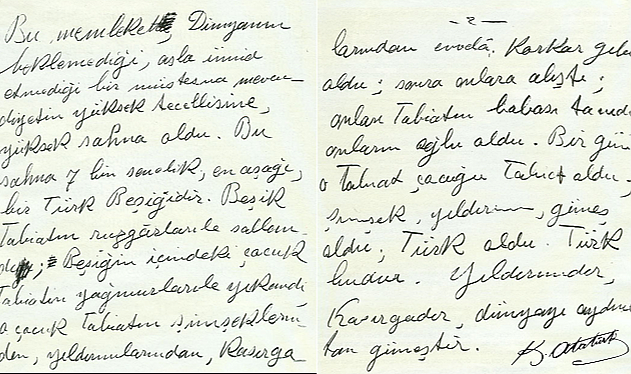 Bu memleket, Dünyanın
beklemediği, asla ümid
etmediği bir müstesna mevcu-
diyetin yüksek tecellisine,
yüksek sahna oldu. Bu
sahna 7 bin senelik, en aşağı,
bir Türk Beşiğidir. Beşik
Tabiatın rüzgârlarile sallan-
dı; Beşiğin içindeki çocuk
Tabiatın yağmurlarile yıkandı
o çocuk Tabiatın şimşekleri-
den, yıldırımlarından, Kasırga
- 2 -
larından evvelâ Korkar gibi
oldu; sonra onlara alıştı;
onları Tabiatın babası tanıdı
onların oğlu oldu. Bir gün
o Tabiat çocuğu Tabiat oldu.
şimşek, yıldırım, güneş
oldu; Türk oldu. Türk
budur. Yıldırımdır,
Kasırgadır, dünyayı aydın-
tan güneştir.
K. Atatürk